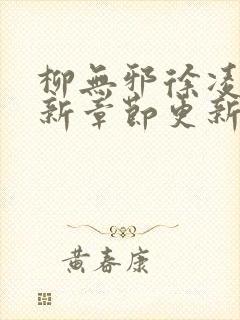 柳無邪徐凌
新章節更新
黃春康